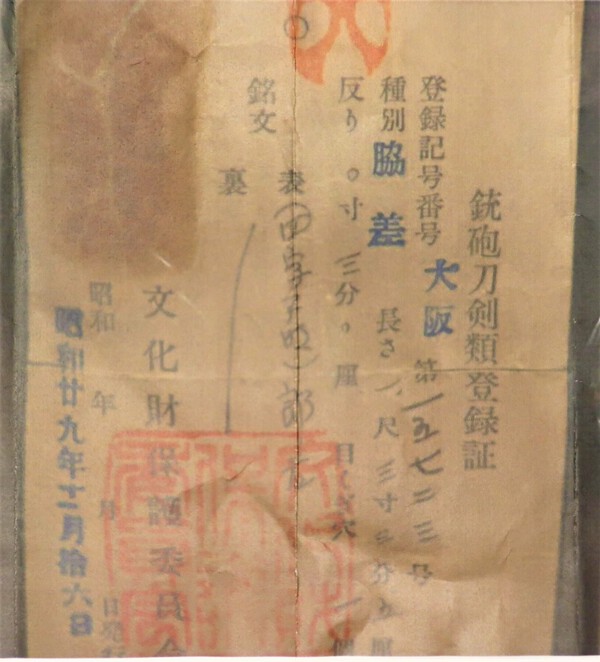 銃砲刀剣類登録証
登録記号番号 大阪 第一五七二三号
種別 脇差 長さ 一尺 三寸 分 五厘
反り 〇寸 三分 〇厘 目くぎ穴 一個
銘文 表
裏
文化財保護委員会
昭和 年 月 日発行
昭和廿九年十二月拾六日